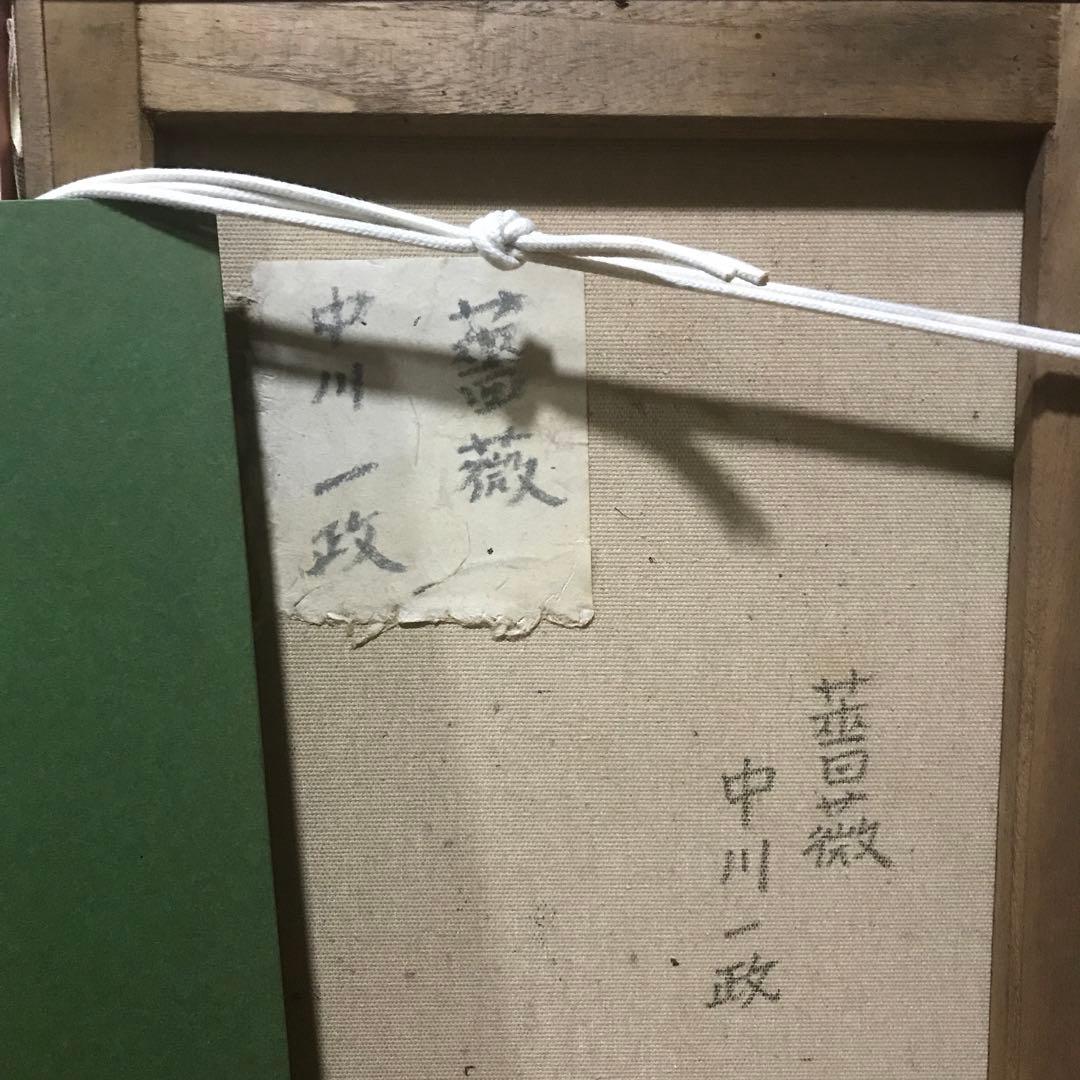 薔薇
中川一政
薔薇
中川一政